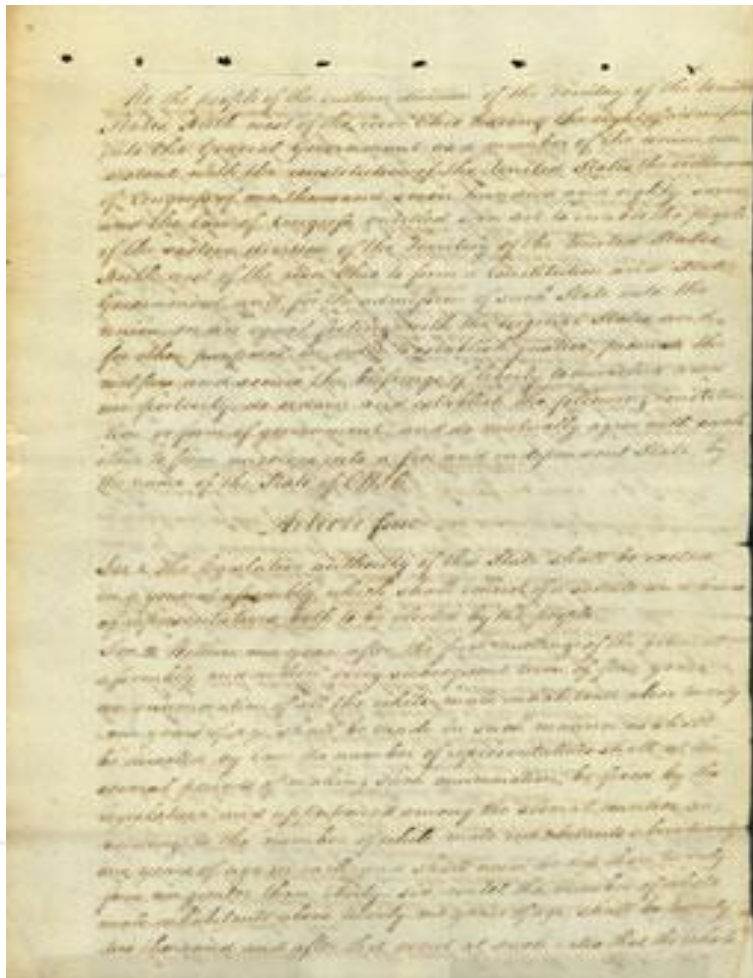 We the people of the eastern division of the Territory of the United
States North west of the river Ohio having the right of
into the General Government as a member of the union con
sistent with the constitution of the United States the ordinance
of Congress of one thousand seven hundred and eighty seven
and the law of Congress entitled an act to enable the people
of the eastern division of the Territory of the United States
North west of the river Ohio to form a Constitution and State
Government and for the admission of such State into the
union on an equal footing with the original States and
for other purposes in order to establish justice promote the
welfare and secure the blessings of liberty to ourselves and
our posterity do ordain and establish the following constitu
tion or form of government and do mutually agree with each
other to form ourselves into a free and independent State by
the name of the State of Ohio
Article first
Sec 1 The legislative authority of this State shall be vested
in a general assembly which shall consist of a senate and house
of representatives both to be elected by the people
Sec 2 Within one year after the first meeting of the general
assembly and within every subsequent term of four years
an enumeration of all the white male inhabitants above twenty
one years of age shall be made in such manner as shall
be directed by law the number of representatives shall at the
several periods of making such enumeration be fixed by the
legislature and apportioned among the several counties ac
cording to the number of white male inhabitants above twenty
one years of age in each and shall never be less than twenty
four nor greater than thirty six until the number of white
male inhabitants above twenty one years of age shall be twenty
two thousand and after that event at such so that the whole